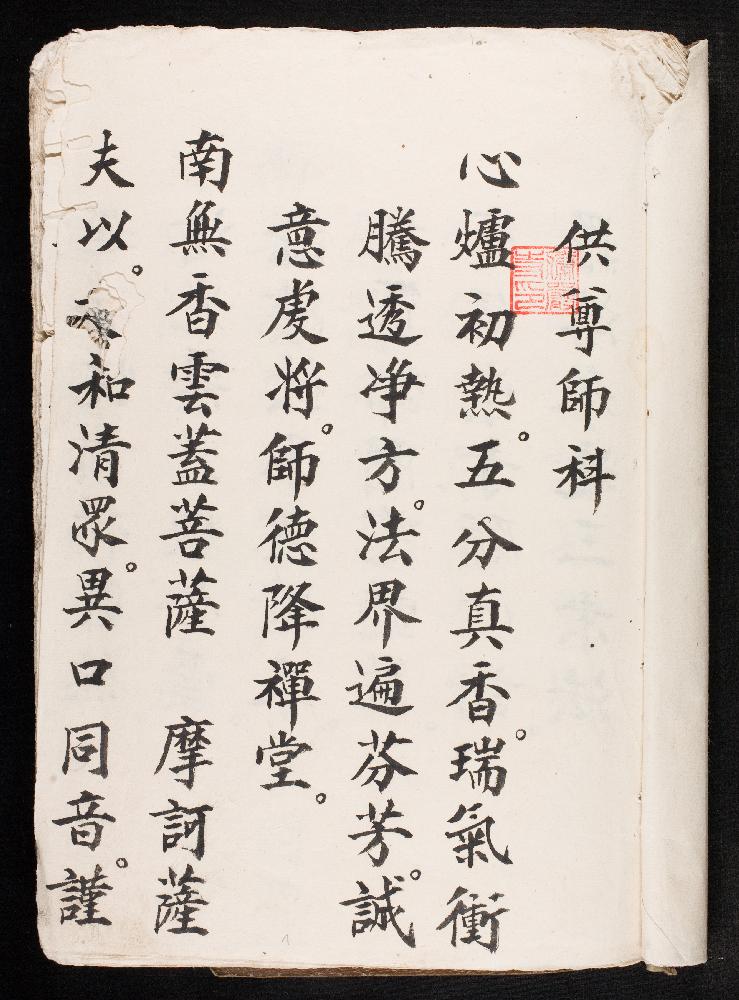 供尊師科
心爐初熱。五分真香。瑞氣衝
騰透净方。法界遍芬芳。誠
意虔將。師德降禪堂。
南無香雲蓋菩薩 摩訶薩
夫以。和清眾。異口同音。謹